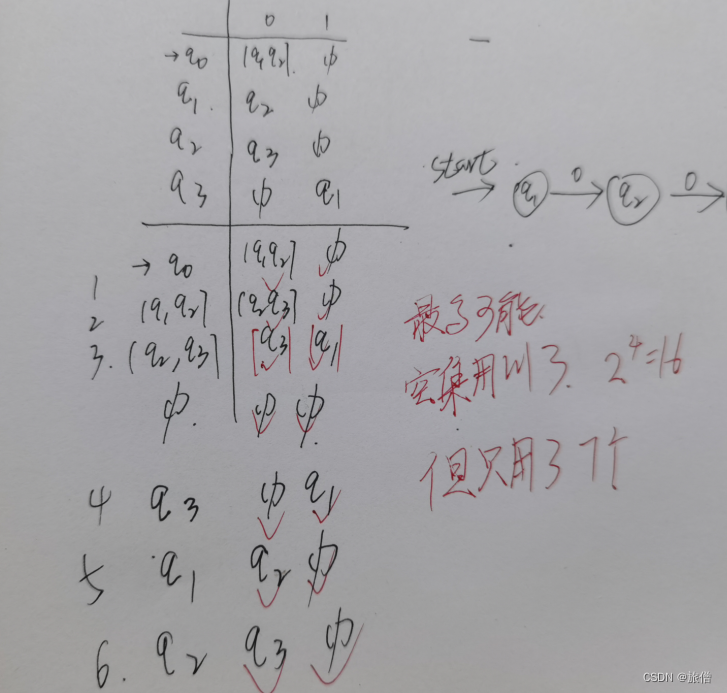 0 1
→q0 [q1q2] ф
q1 q2 ф
q2 q3 ф
q3 ф q1
start
q1 0 q2 0
→ q0 [q1q2] ф
1
2 [q1q2] [q2q3] ф
3. [q2,q3] [q3] [q1]
ф ф ф
4 q3 ф q1
5 q1 q2 ф
6. q2 q3 ф
最多可能
空集用到了. 2^4=16
但只用了7个
CSDN @旅僧